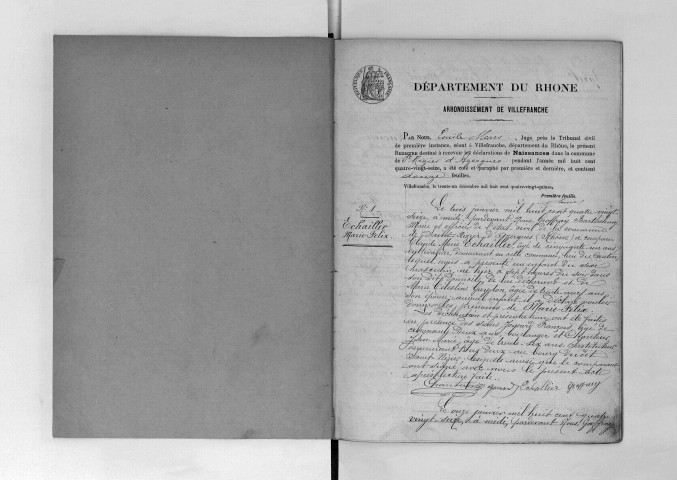 DÉPARTEMENT DU RHONE
ARRONDISSEMENT DE VILLEFRANCHE
PAR NOUS, Emile , Juge près le Tribunal civil
de première instance, séant à Villefranche, département du Rhône, le présent
Registre destiné à recevoir les déclarations de Naissances dans la commune
de St Nizier d'Azergues pendant l'année mil huit cent
quatre-vingt-seize, a été coté et paraphé par première et dernière, et contient
feuilles.
Villefranche, le trente-un décembre mil huit cent quatre-vingt-quinze.
Première feuille.
N° 1
Echallier
Marie Felix.
Le trois janvier mil huit cent quatre vingt
seize, à midi, pardevant Nous Geoffray
Maire et officier de l'état civil de la commune
de Saint Nizier d'Azergues (Rhône) a comparu
Claude Marie Echallier, âgé de cinquante ans
cultivateur, demeurant en cette commune, lieu du
lequel nous a présenté un enfant du sexe
masculin, né hier à sept heures du soir dans
son domicile de lui déclarant et de
Marie âgée de trente neuf ans
son épouse, auquel enfant il a déclaré vouloir
donner les prénoms de Marie Felix
Les déclaration et présentation ont été faites
en présence des sieurs François, âgé de
cinquante deux ans, boulanger et
Jean Marie, âgé de trente six ans, instituteur
demeurant tous deux au bourg dudit
Saint Nizier, lesquels ainsi que le comparant
ont signé avec nous le présent acte
après lecture faite.
Echallier Geoffray
Le onze janvier mil huit cent quatre
vingt seize, à midi, pardevant Nous Geoffray